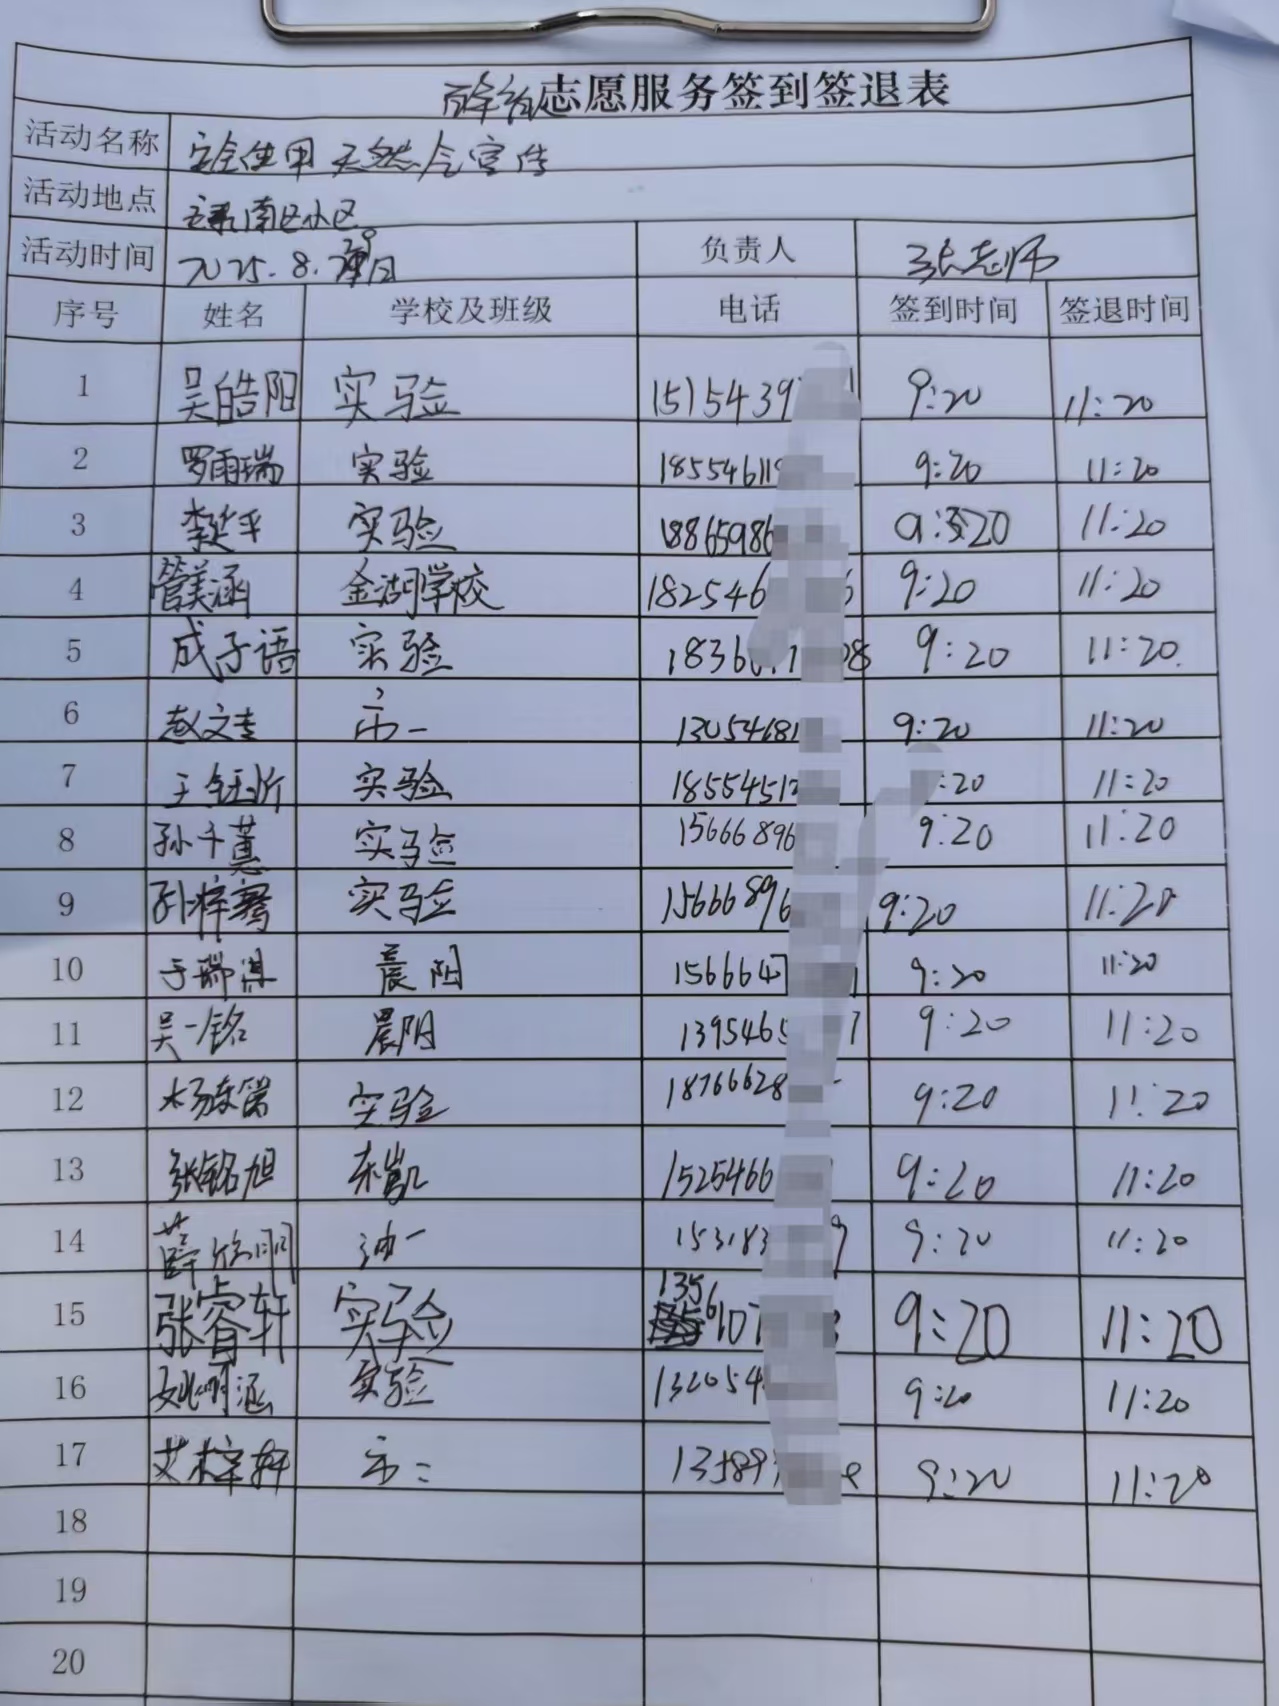 志愿服务签到签退表
活动名称 安全使用天然气宣传
活动地点 南区小区
活动时间 2025.8. 日 负责人 张老师
序号 姓名 学校及班级 电话 签到时间 签退时间
1 吴皓阳 实验 1515439 9:20 11:20
2 罗雨瑞 实验 18554611 9:20 11:20
3 李延平 实验 1886598 9:20 11:20
4 管美涵 金湖学校 182546 6 9:20 11:20
5 成子语 实验 1836 08 9:20 11:20
6 赵文 市一 13054681 9:20 11:20
7 王钰昕 实验 1855451 :20 11:20
8 孙千蕙 实验 15666896 9:20 11:20
9 孙梓骞 实验 15666896 9:20 11:20
10 于瑞淇 晨阳 1566647 9:20 11:20
11 吴一铭 晨阳 139546 9:20 11:20
12 杨 实验 18766628 9:20 11:20
13 张铭旭 东凯 1525466 9:20 11:20
14 薛 油一 153183 9 9:20 11:20
15 张睿轩 实验 1356 10 9:20 11:20
16 姚明涵 实验 132054 9:20 11:20
17 艾梓轩 市二 13589 9:20 11:20
18
19
20